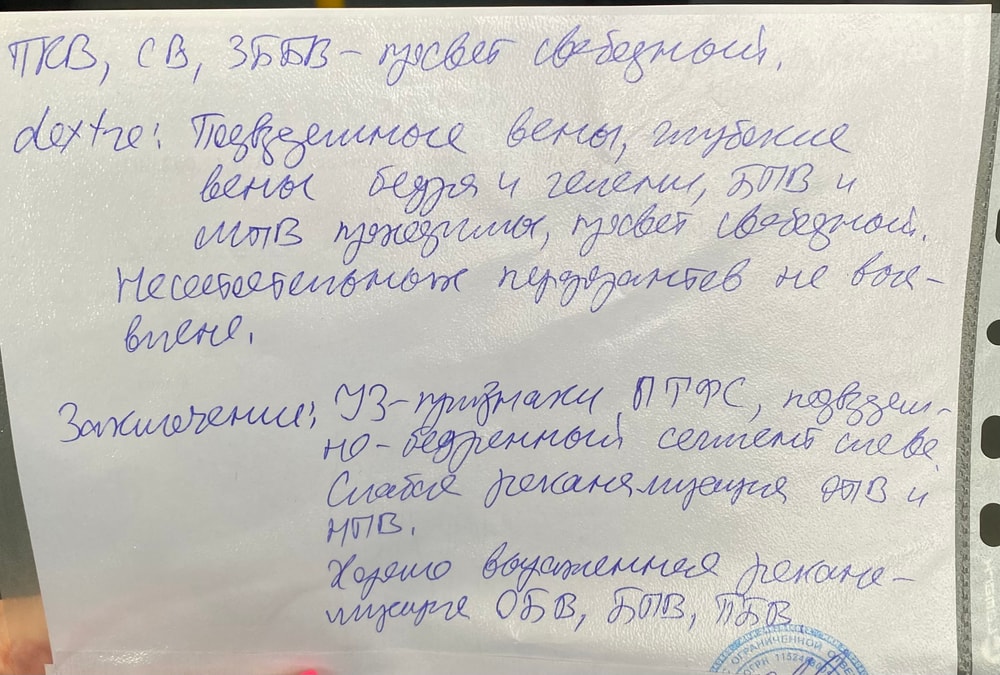 ПКВ, СВ, ЗББВ – просвет свободный.
dextre: Подвздошные вены, глубокие
вены бедра и голени, БПВ и
МПВ проходимы, просвет свободный.
Несостоятельных перфорантов не выя-
влено.
Заключение: УЗ-признаки ПТФС, подвздош-
но-бедренный сегмент слева.
Слабая реканализация ОПВ и
НПВ.
Хорошо выраженная рекана-
лизация ОБВ, БПВ, ПБВ
ОГРАНИЧЕННОЙ ОТВЕ
ОГРН 11524